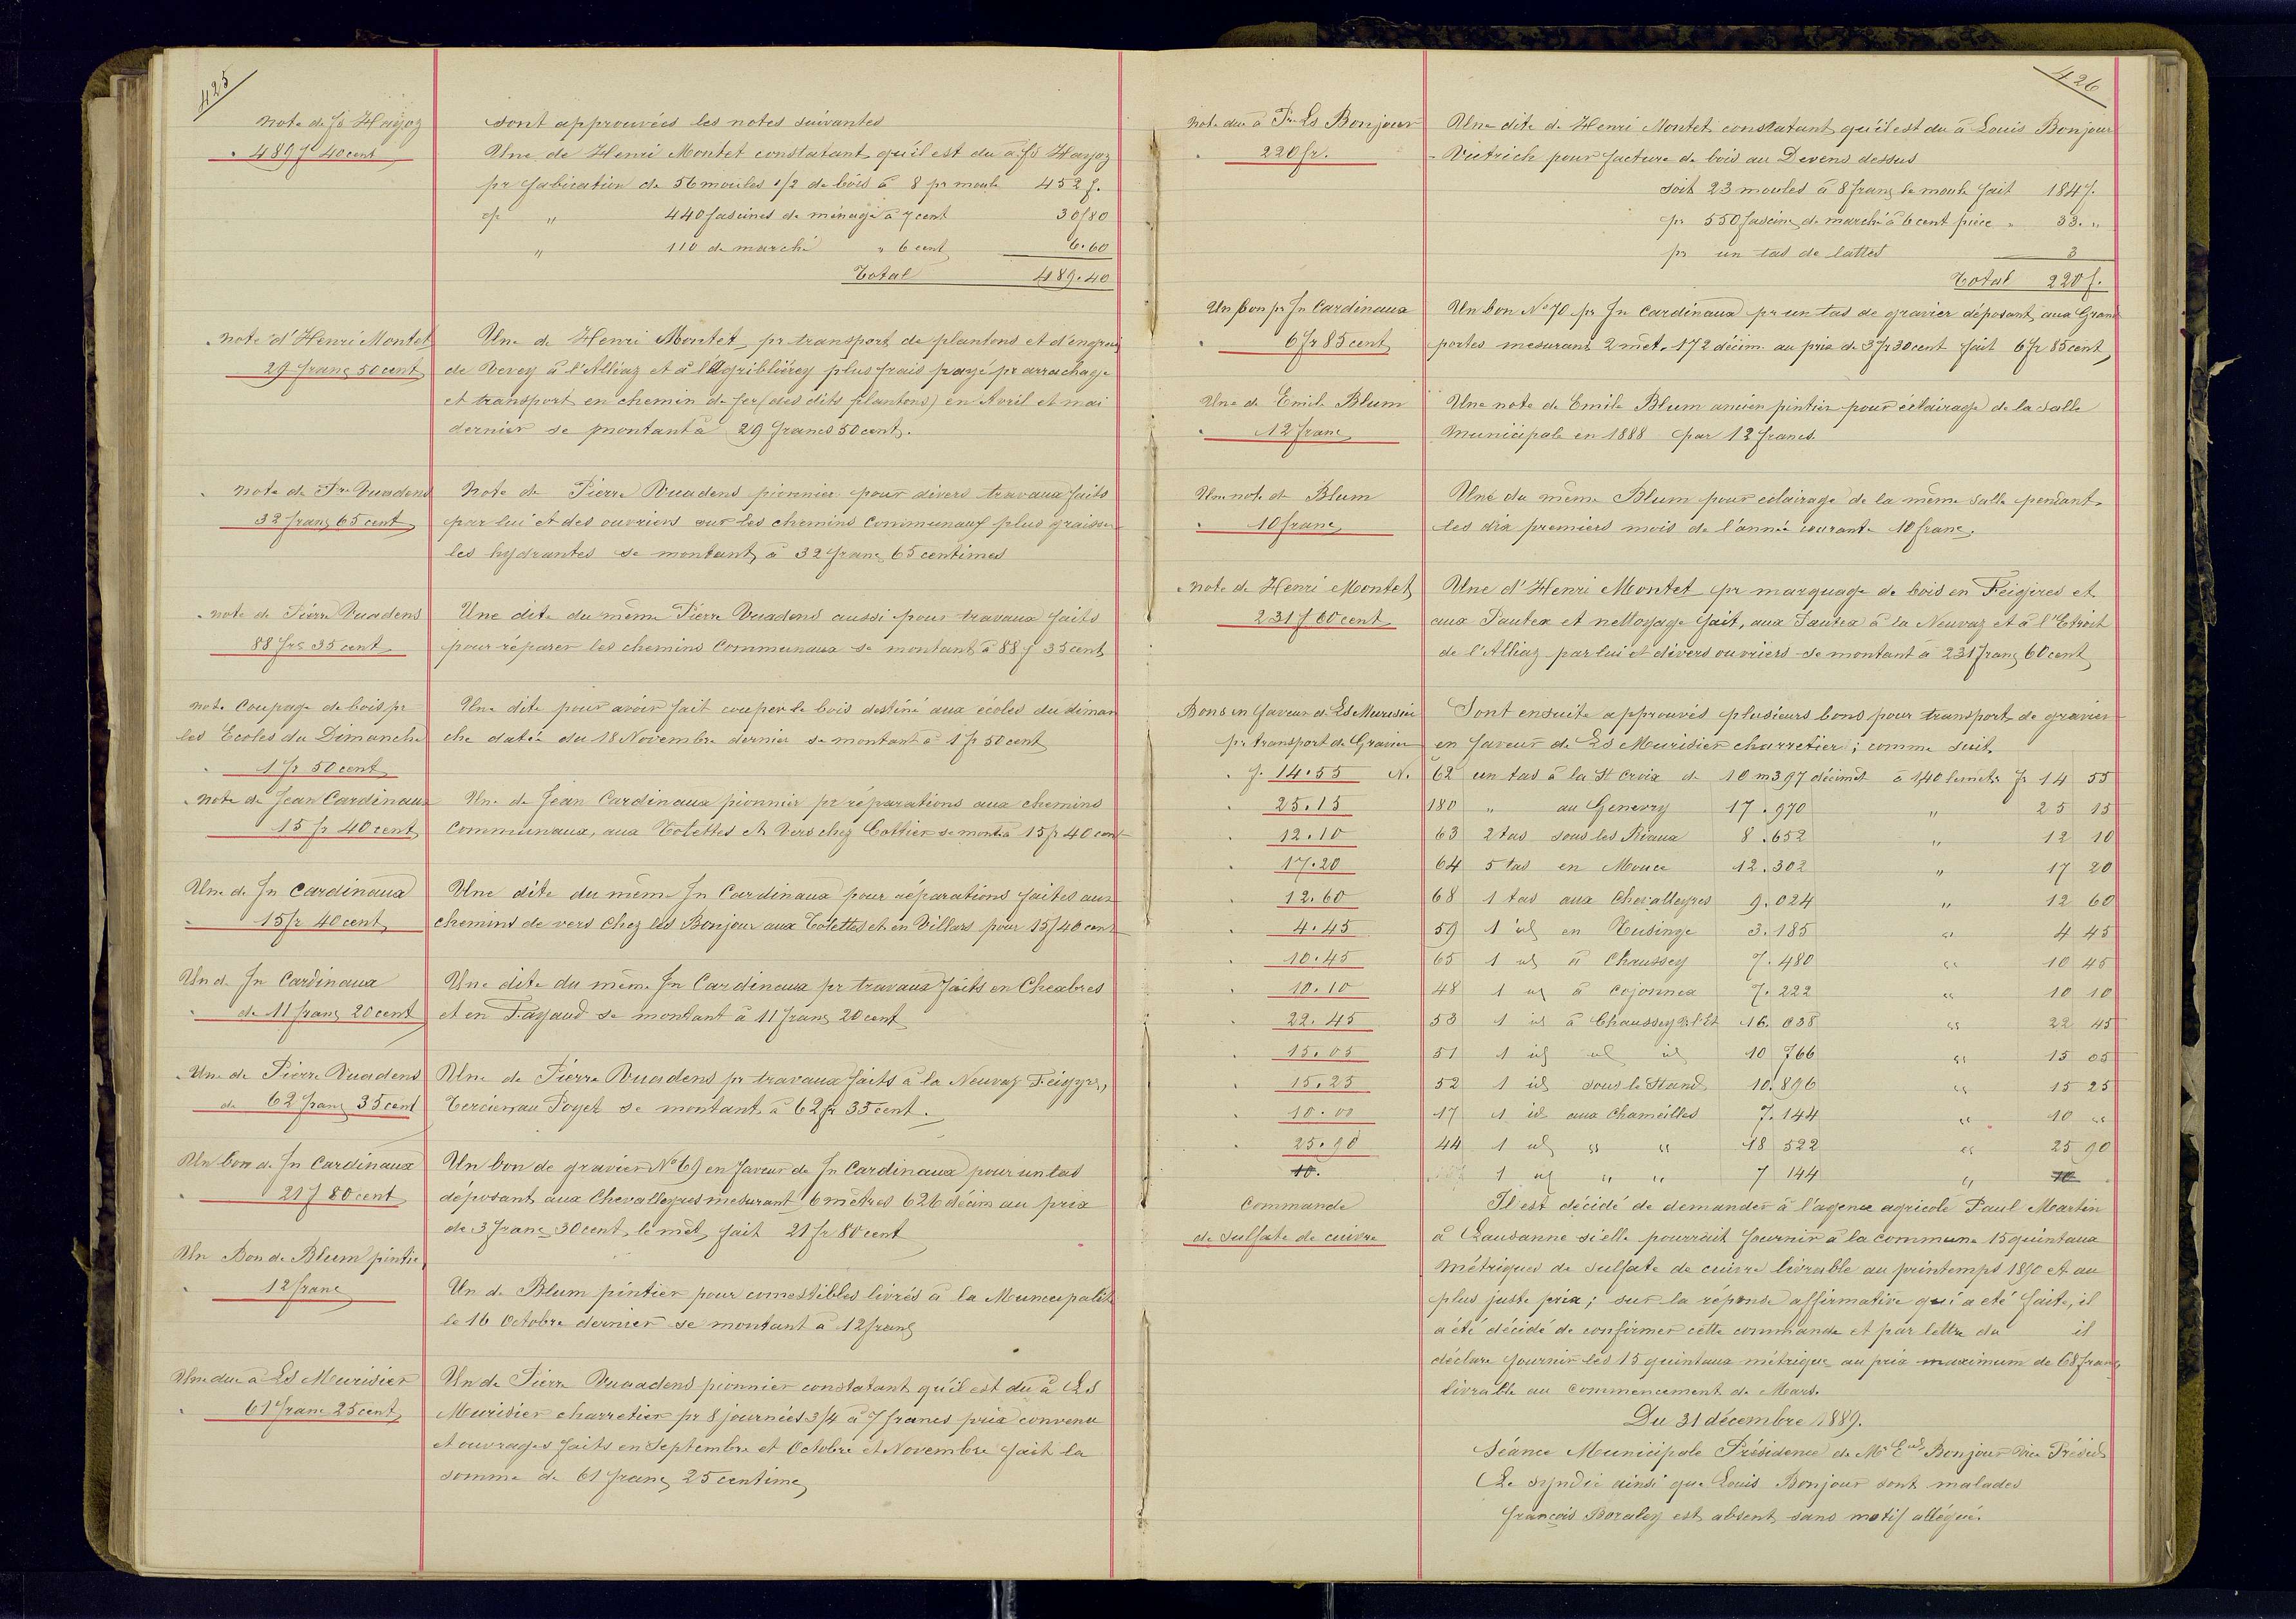 425
Note de Fs Hayoz
489 f 40 cent
Sont approuvées les notes suivantes
Une de Henri Montet constatant qu'il est du à Fs Hayoz
pr fabrication de 56 moules 1/2 de bois à 8 pr moule 452 f.
pr " 440 fascines de ménage à 7 cent 30/80
" 110 de marché " 6 cent 6.60
Total 489.40
Note d'Henri Montet
29 franç 50 cent
Une de Henri Montet pr transport de plantons et d'engrais
de Vevey à l'Alliaz et à l'Agriblierey plus frais payé pr arrachage
et transport en chemin de fer (des dits plantons) en Avril et mai
dernier se montant à 29 francs 50 cent.
Note de Pre Vuadens
32 franç 65 cent
Note de Pierre Vuadens pionnier pour divers travaux faits
par lui et des ouvriers sur les chemins Communaux plus graisser
les hydrantes se montant à 32 franc 65 centimes
Note de Pierre Vuadens
88 frs 35 cent
Une dite du même Pierre Vuadens aussi pour travaux faits
pour réparer les chemins Communaux se montant à 88 f 35 cent
Note Coupage de bois pr
les Ecoles du Dimanche
1 fr 50 cent
Une dite pour avoir fait couper le bois destiné aux écoles du diman
che datée du 18 Novembre dernier se montant à 1 fr 50 cent
Note de Jean Cardinaux
15 fr 40 cent
Une de Jean Cardinaux pionnier pr réparations aux chemins
Communaux, aux Tolettes et Vers chez Cottier se mont à 15 fr 40 cent
Une de Jn Cardinaux
15 fr 40 cent
Une dite du même Jn Cardinaux pour réparations faites aux
chemins de vers Chez les Bonjour aux Tolettes et en Villars pour 15/40 cent
Un de Jn Cardinaux
de 11 franç 20 cent
Une dite du même Jn Cardinaux pr travaux faits en Cheabres
et en Fayaud se montant à 11 franç 20 cent
Une de Pierre Vuadens
de 62 franç 35 cent
Une de Pierre Vuadens pr travaux faits à la Neuvaz Feigyres,
se montant à 62 fr 35 cent.
Un bon de Jn Cardinaux
21 f 80 cent
Un bon de gravier No 69 en faveur de Jn Cardinaux pour un tas
déposant aux Chevalleyres mesurant 6 mètres 626 décim au prix
de 3 franc 30 cent le mèt fait 21 fr 80 cent
Un Bon de Blum pintier
12 franc
Un de Blum pintier pour comestibles livrés à la Municipalité
le 16 Octobre dernier se montant à 12 franç
Une due à Ls Murisier
61 franc 25 cent
Un de Pierre Vuaadens pionnier constatant qu'il est du à Ls
Murisier charretier pr 8 journées 3/4 à 7 francs prix convenu
et ouvrages faits en Septembre et Octobre et Novembre fait la
somme de 61 franç 25 centime
426
Note due à Fr Ls Bonjour
220 fr.
Une dite de Henri Montet constatant qu'il est du à Louis Bonjour
- Dietrich pour facture de bois au Devens dessus
soit 23 moules à 8 franç le moule fait 184 f.
pr 550 fascine de marché à 6 cent pièce " 33. "
pr un tas de lattes 3
Total 220 f.
Un bon pr Jn Cardinaux
6 fr 85 cent
Un bon No 70 pr Jn Cardinaux pr un tas de gravier déposant aux Grand
portes mesurant 2 mèt. 172 décim au prix de 3 fr 30 cent fait 6 fr 85 cent
Une de Emile Blum
12 franc
Une note de Emile Blum ancien pintier pour éclairage de la salle
Municipale en 1888 par 12 francs.
Une note de Blum
10 franc
Une du même Blum pour eclairage de la même salle pendant
les dix premiers mois de l'année courante 10 franc,
Note de Henri Montet
231 f 60 cent
Une d'Henri Montet pr marquage de bois en Feigires et
aux Pautex et nettoyage fait, aux Pautex à la Neuvaz et à l'Etroit
de l'Alliaz par lui et divers ouvriers se montant à 231 franç 60 cent
Bons en faveur de Ls Murisier
pr transport de Gravier
Sont ensuite approuvés plusieurs bons pour transport de gravier
en faveur de Ls Murisier charretier; comme suit
f. 14.55 N. 62 un tas à la St Croix de 10 m 397 décimèt à 1/40 le mètr fr 14 55
25.15 180 " au Genevry 17.970 " 25 15
12.10 63 2 tas sous les Riaux 8.652 " 12 10
17.20 64 5 tas en Mouce 12.302 " 17 20
12.60 68 1 tas aux Chevalleyres 9.024 " 12 60
4.45 59 1 id en Tusinge 3.185 " 4 45
10.45 65 1 id à Chaussey 7.480 " 10 45
10.10 48 1 id à Cojonnex 7.222 " 10 10
22.45 53 1 id à Chaussey 16.038 " 22 45
15.05 51 1 id id id 10 766 " 15 05
15.25 52 1 id sous le Stand 10.896 " 15 25
10.00 17 1 id aux Chameilles 7.144 " 10 "
25.90 44 1 id " " 18 522 " 25 90
10. 1 id " " 7 144 " 10
Commande
de sulfate de cuivre
Il est décidé de demander à l'agence agricole Paul Martin
à Lausanne si elle pourrait fournir à la commune 15 quintaux
métriques de sulfate de cuivre livrable au printemps 1890 et au
plus juste prix; sur la réponse affirmative qui a été faite, il
a été décidé de confirmer cette commande et par lettre du il
déclare fournir les 15 quintaux métrique au prix maximum de 68 franç
livrable au commencement de Mars.
Du 31 décembre 1889.
Séance Municipale Présidence de Mr Eud Bonjour Vice Présid
Le syndic ainsi que Louis Bonjour sont malades
françois Boraley est absent sans motif allégué.